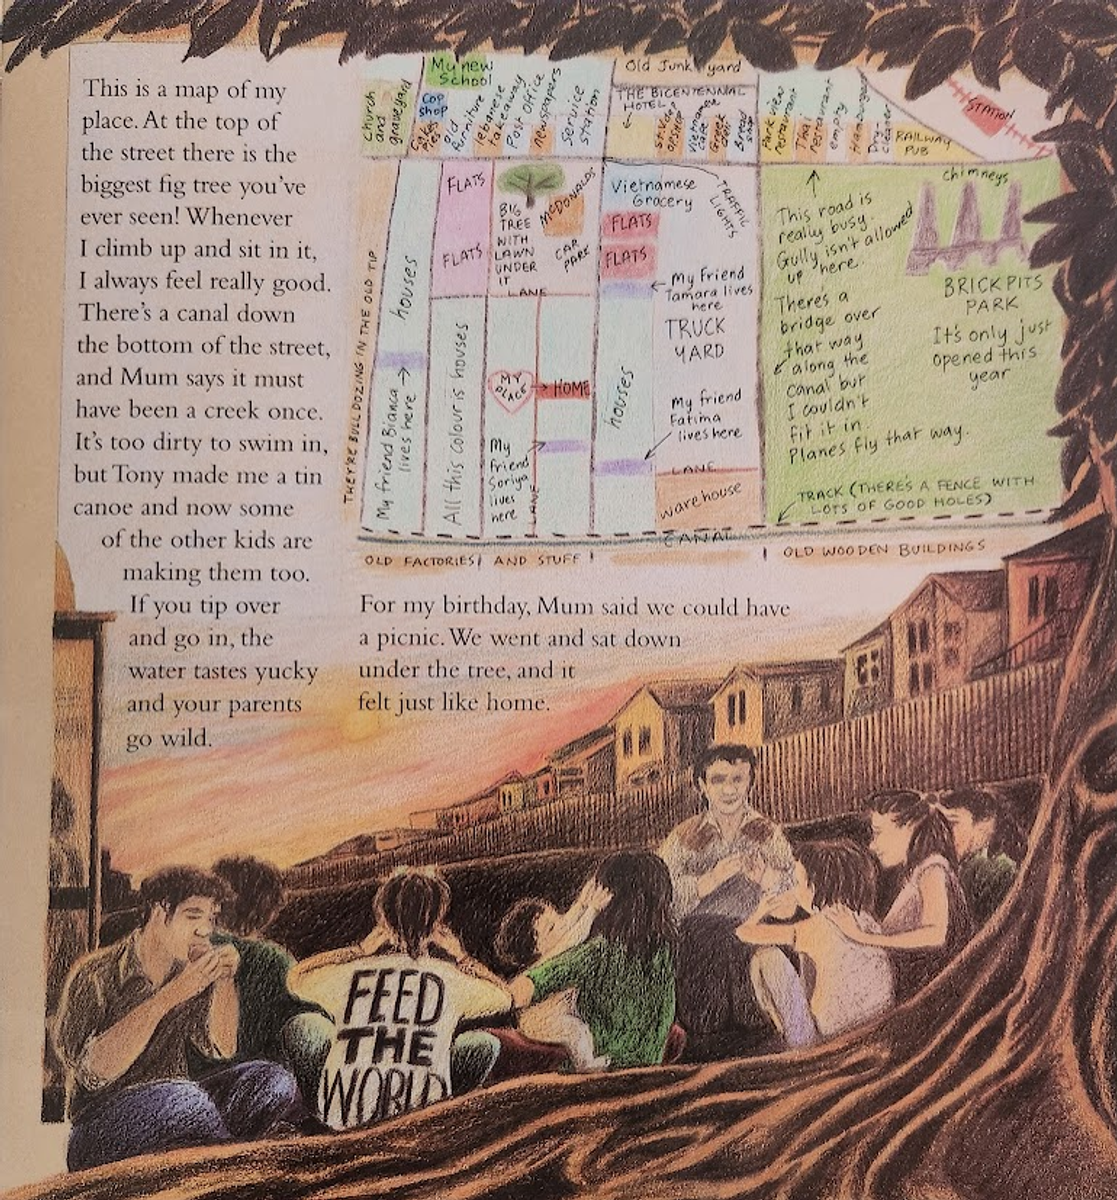 This is a map of my
place. At the top of
the street there is the
biggest fig tree you've
ever seen! Whenever
I climb up and sit in it,
I always feel really good.
There's a canal down
the bottom of the street,
and Mum says it must
have been a creek once.
It's too dirty to swim in,
but Tony made me a tin
canoe and now some
of the other kids are
making them too.
If you tip over
and go in, the
water tastes yucky
and your parents
go wild.
Church
and
graveyard
My new
School
Cop
shop
old
furniture
lebanese
takeaway
Post office
newspapers
Service
station
Old Junk yard
THE BICENTENNAL
HOTEL
Vietnamese
cafe
Greek
deli
Bread
shop
Park view
restaurant
Thai
restaurant
empty
Hamburger
Dry-
cleaner
RAILWAY
PUB
STATION
THEY'RE BULLDOZING IN THE OLD TIP
houses
My friend Bianca
lives here
FLATS
FLATS
All this colour is houses
BIG
TREE
WITH
LAWN
UNDER
IT
McDONALDS
CAR
PARK
LANE
MY
PLACE
HOME
My
friend
Soriya
lives
here
LANE
Vietnamese
Grocery
FLATS
FLATS
TRAFFIC
LIGHTS
My Friend
Tamara lives
here
TRUCK
YARD
houses
My friend
Fatima
lives here
LANE
warehouse
This road is
really busy.
Gully isn't allowed
up here.
There's a
bridge over
that way
along the
canal but
I couldn't
fit it in.
Planes fly that way.
Chimneys
BRICK PITS
PARK
It's only just
opened this
year
TRACK (THERE'S A FENCE WITH
LOTS OF GOOD HOLES)
CANAL
OLD FACTORIES AND STUFF
OLD WOODEN BUILDINGS
For my birthday, Mum said we could have
a picnic. We went and sat down
under the tree, and it
felt just like home.
FEED
THE
WORLD